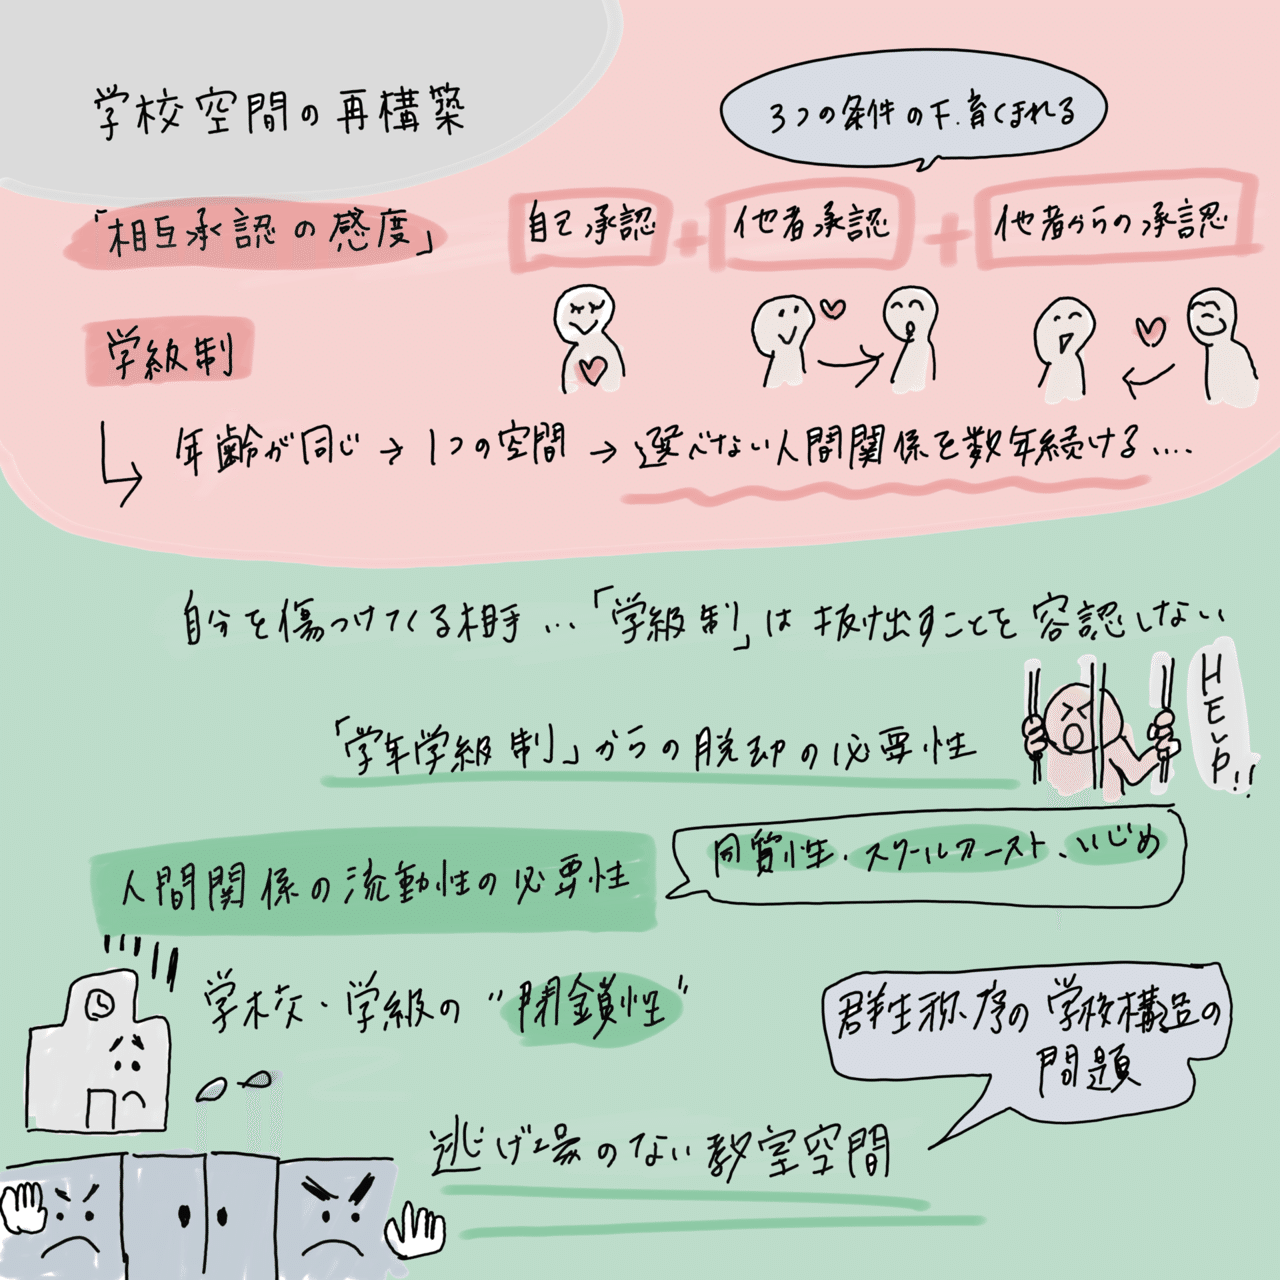 学校空間の再構築
3つの条件の下、育くまれる
「相互承認の感度」
自己承認 + 他者承認 + 他者からの承認
学級制
年齢が同じ → 1つの空間 → 選べない人間関係を数年続ける....
自分を傷つけてくる相手...「学級制」は抜け出すことを容認しない
HELP!!
「学年学級制」からの脱却の必要性
同質性・スクールカースト、いじめ
人間関係の流動性の必要性
学校・学級の"閉鎖性"
群生秩序の学校構造の
問題
逃げ場のない教室空間